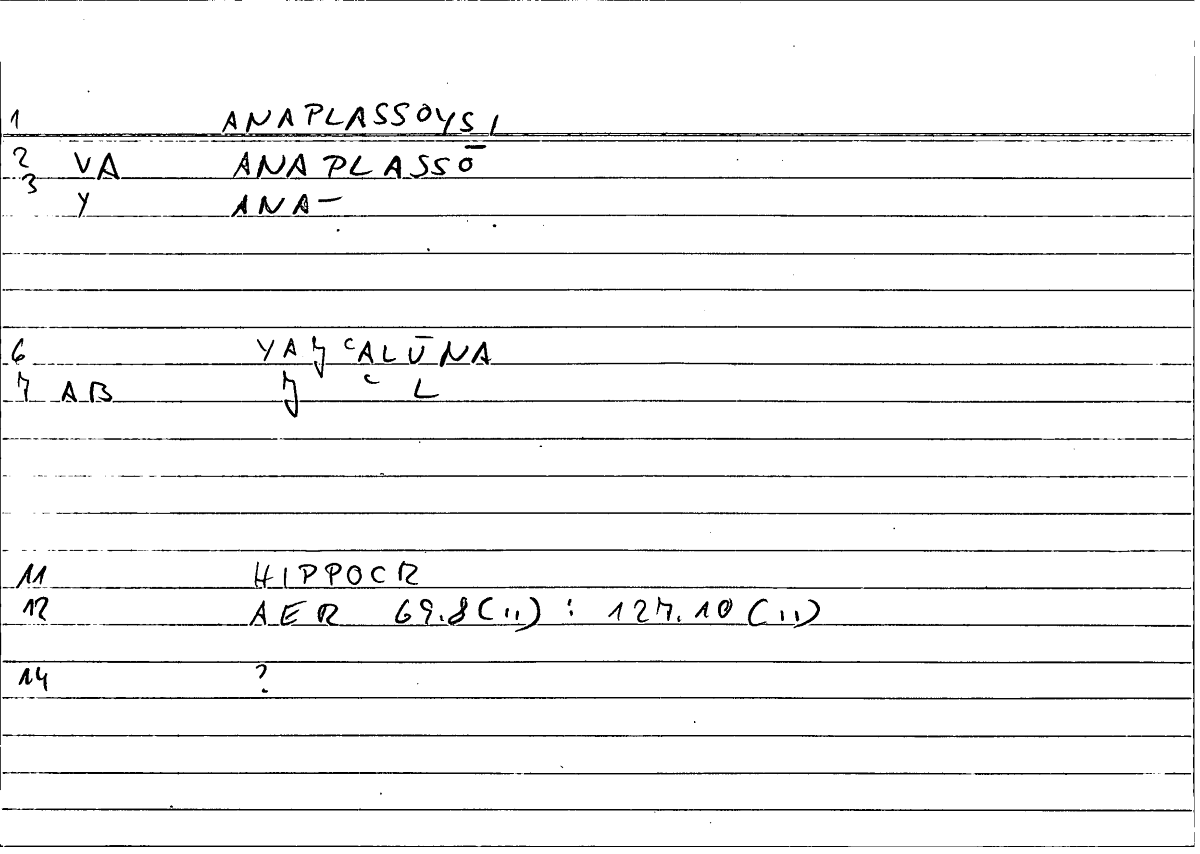 1 ANAPLASSOYSI
2 VA ANAPLASSŌ
3 Y ANA-
6 YAʒ ʿALŪNA
7 AB ʒ ʿ L
11 HIPPOCR
12 AER 69.8(11) : 127.10(11)
14 ?